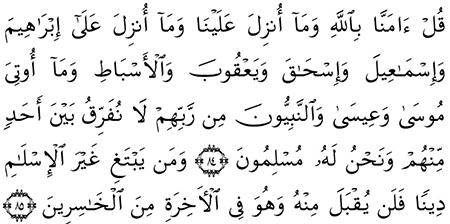 قُلْ ءَامَنَّا بِٱللَّهِ وَمَآ أُنزِلَ عَلَيْنَا وَمَآ أُنزِلَ عَلَىٰٓ إِبْرَٰهِيمَ
وَإِسْمَـٰعِيلَ وَإِسْحَـٰقَ وَيَعْقُوبَ وَٱلْأَسْبَاطِ وَمَآ أُوتِىَ
مُوسَىٰ وَعِيسَىٰ وَٱلنَّبِيُّونَ مِن رَّبِّهِمْ لَا نُفَرِّقُ بَيْنَ أَحَدٍ
مِّنْهُمْ وَنَحْنُ لَهُۥ مُسْلِمُونَ ﴿٨٤﴾ وَمَن يَبْتَغِ غَيْرَ ٱلْإِسْلَـٰمِ
دِينًا فَلَن يُقْبَلَ مِنْهُ وَهُوَ فِى ٱلْـَٔاخِرَةِ مِنَ ٱلْخَـٰسِرِينَ ﴿٨٥﴾